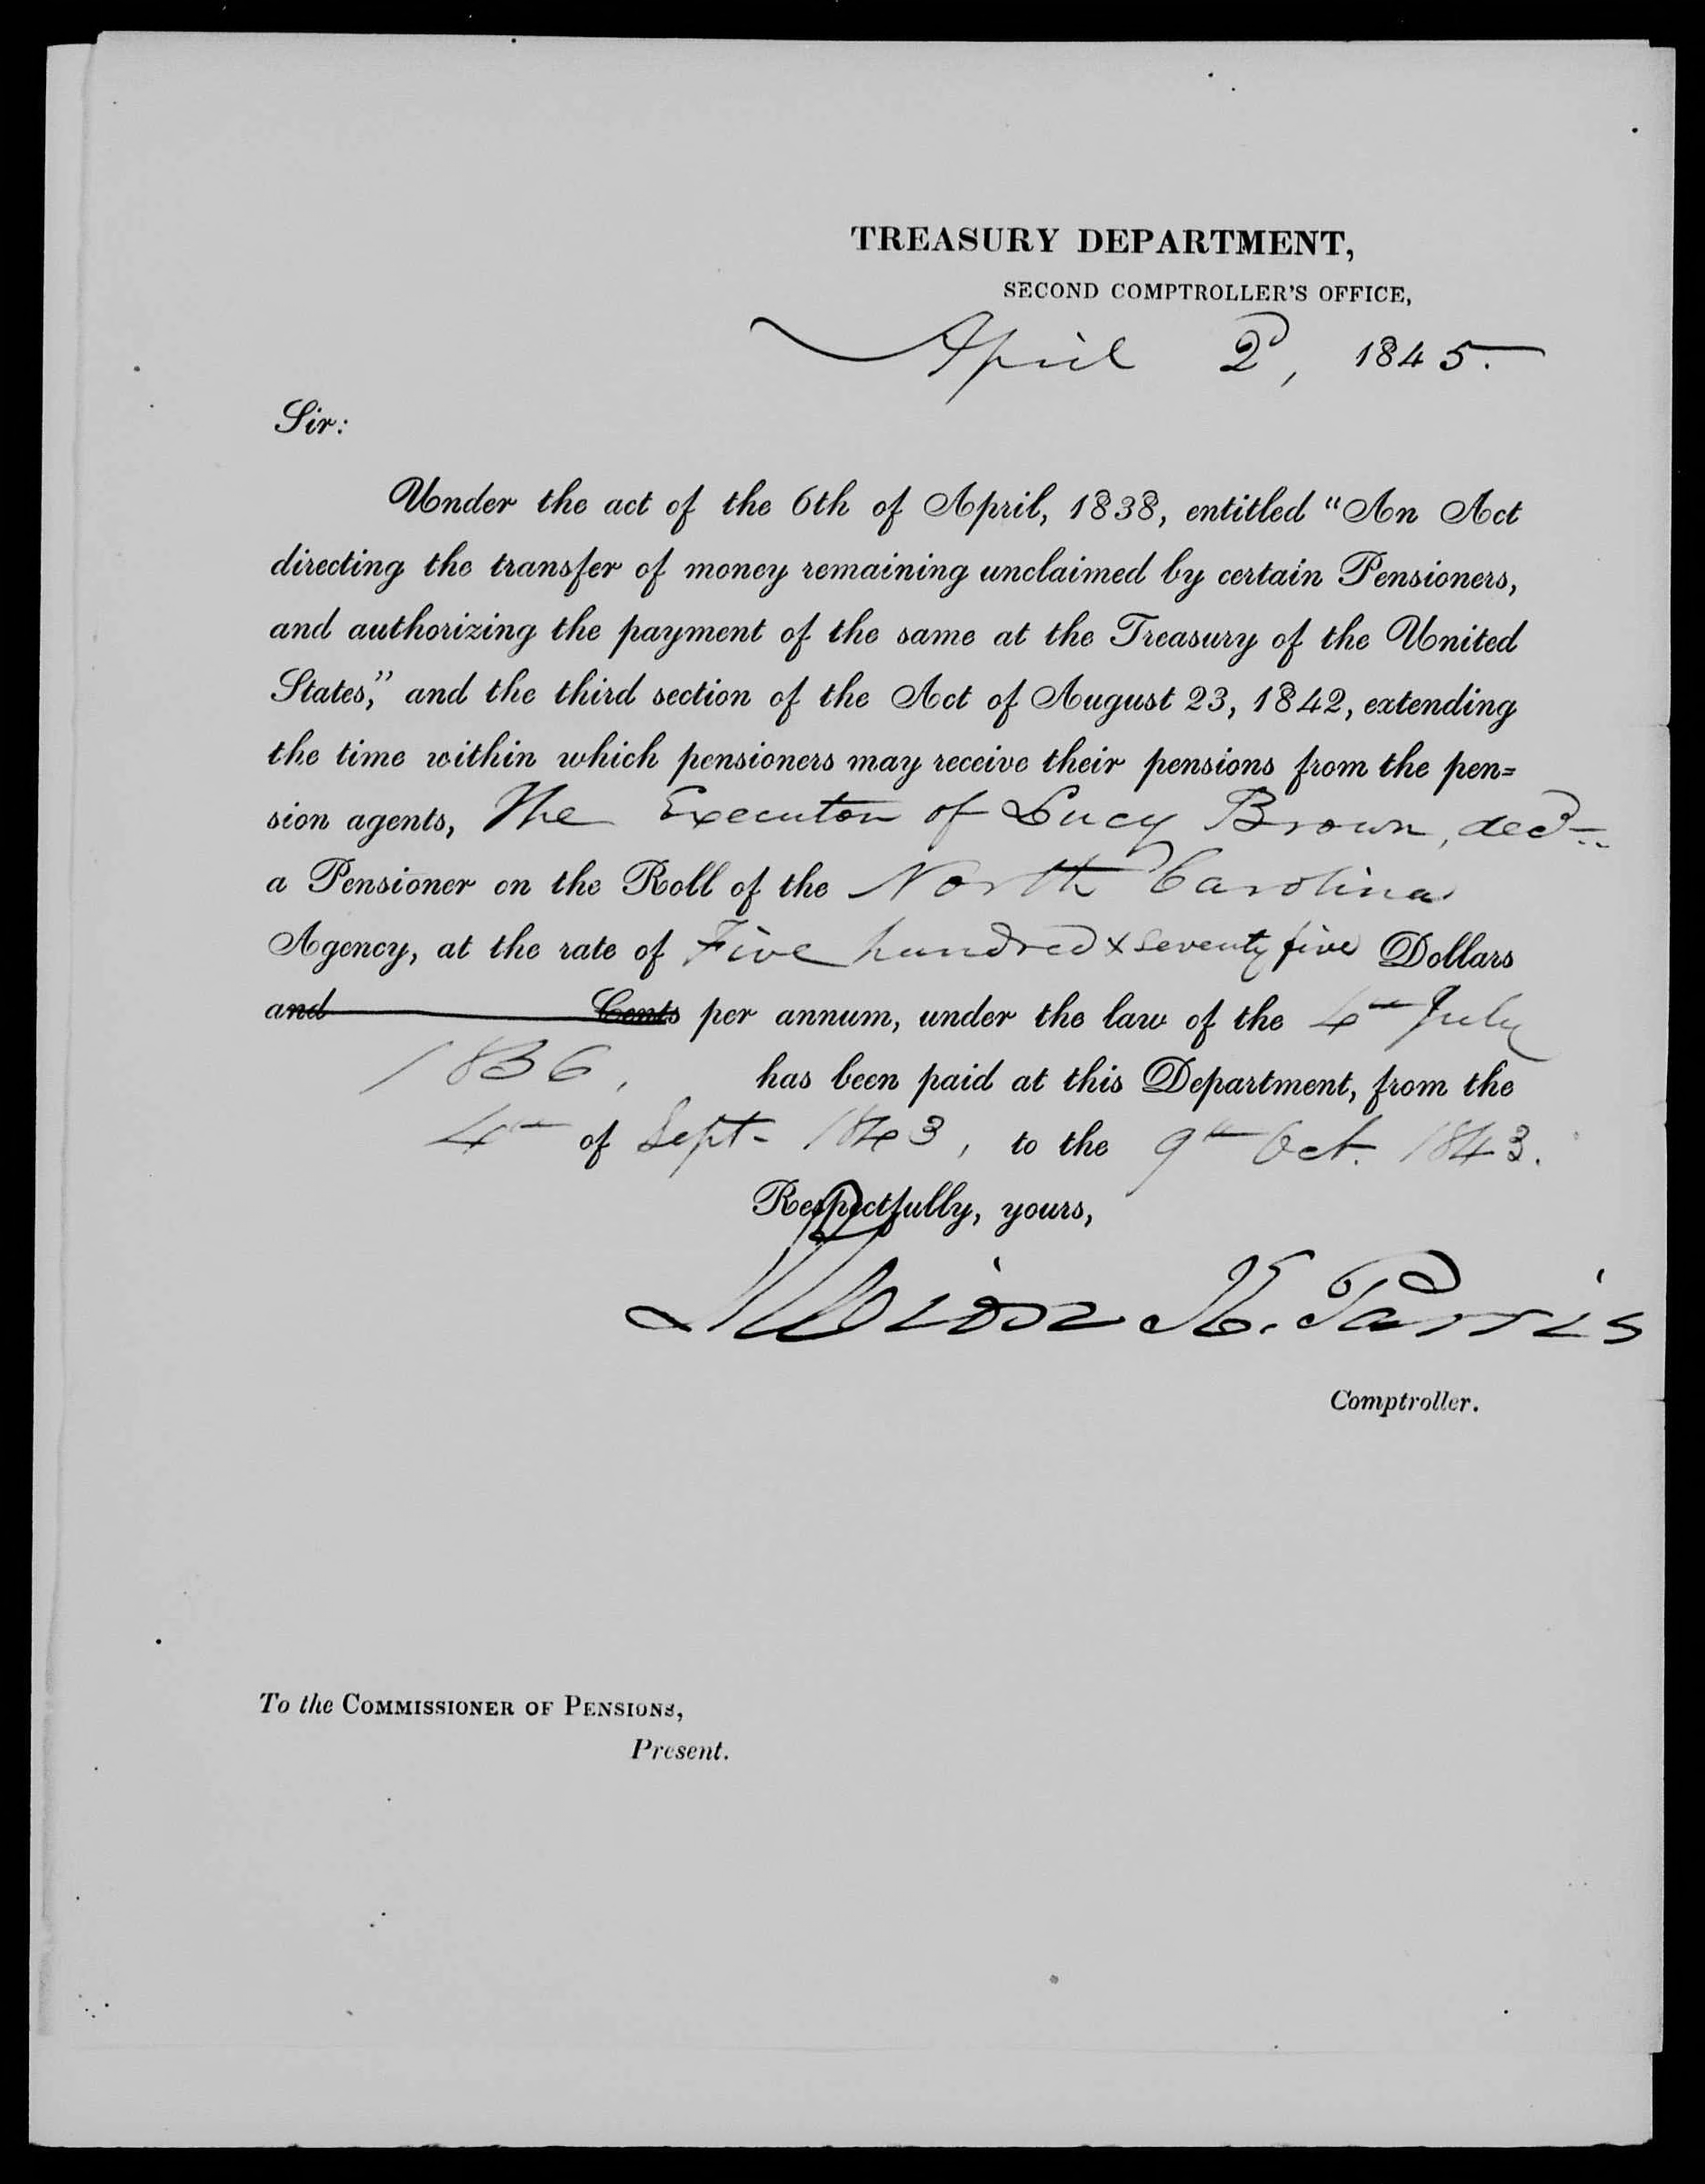 TREASURY DEPARTMENT,
SECOND COMPTROLLER'S OFFICE,
April 2, 1845.
Sir:
Under the act of the 6th of April, 1838, entitled "An Act
directing the transfer of money remaining unclaimed by certain Pensioners,
and authorizing the payment of the same at the Treasury of the United
States," and the third section of the Act of August 23, 1842, extending
the time within which pensioners may receive their pensions from the pen=
sion agents, The Executor of Lucy Brown, decd
a Pensioner on the Roll of the North Carolina
Agency, at the rate of Five hundred & seventy five Dollars
and Cents per annum, under the law of the 4th July
1836, has been paid at this Department, from the
4th of Sept. 1843, to the 9th Oct. 1843.
Respectfully, yours,
Albion K. Parris
Comptroller.
To the COMMISSIONER OF PENSIONS,
Present.